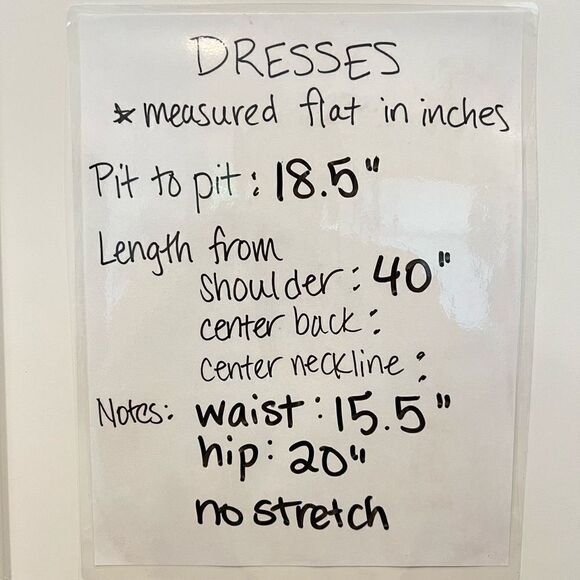 DRESSES
* measured flat in inches
Pit to pit: 18.5"
Length from
shoulder: 40"
center back:
center neckline:
Notes: waist: 15.5"
hip: 20"
no stretch